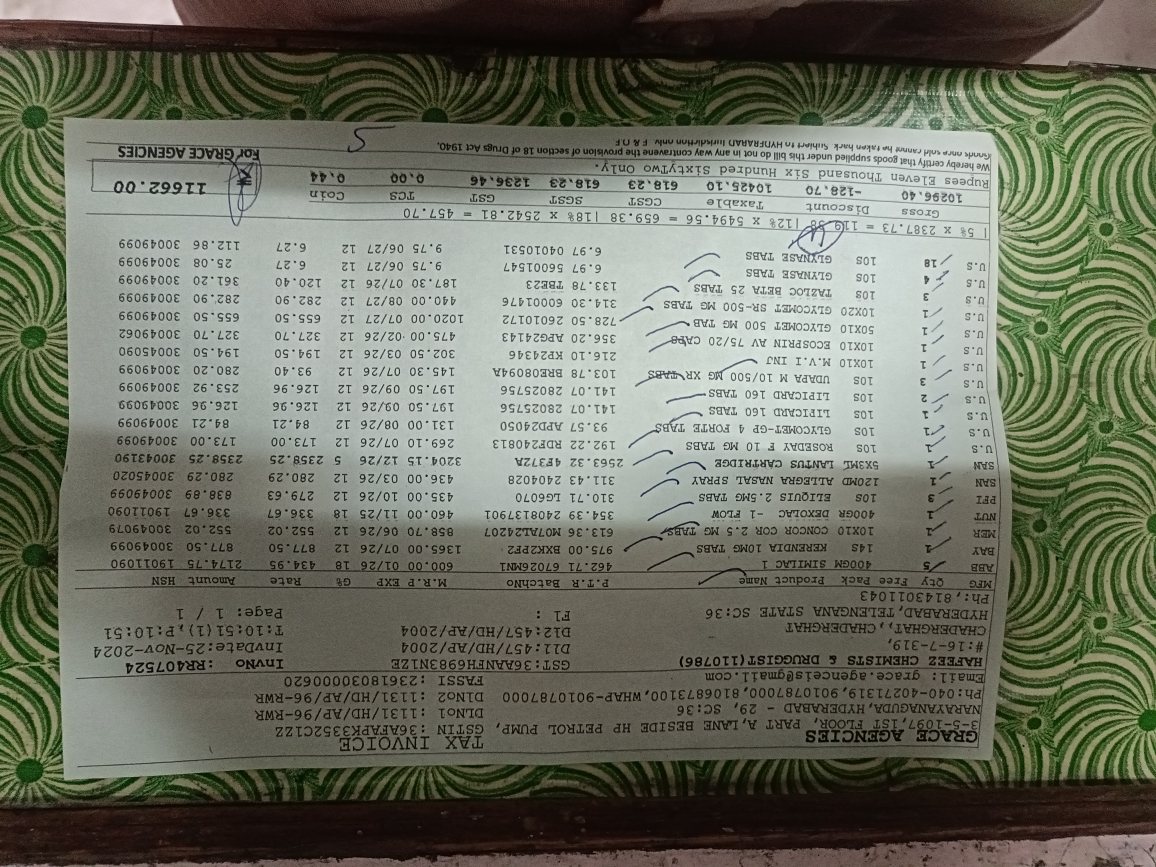 GRACE AGENCIES TAX INVOICE
3-5-1097,1ST FLOOR, PART A,LANE BESIDE HP PETROL PUMP, GSTIN :36AFAPK3352C1ZZ
NARAYANAGUDA,HYDERABAD - 29, SC:36 DLNO1 :1131/HD/AP/96-RWR
Ph:040-40271319,9010787000,8106873100,WHAP-9010787000 DLNO2 :1131/HD/AP/96-RWR
Email: grace.agencies@gmail.com FASSI :23618030000620
HAFEEZ CHEMISTS & DRUGGIST(110786) GST:36AANFH6983N1ZE InvNo :RR4075524
#:16-7-319, Dl1:457/HD/AP/2004 InvDate:25-Nov-2024
CHADERGHAT,,CHADERGHAT Dl2:457/HD/AP/2004 T:10:51(1),P:10:51
HYDERABAD,TELENGANA STATE SC:36 Fl : Page: 1 / 1
Ph:,8143011043
MFG Qty Free Pack Product Name P.T.R BatchNo M.R.P EXP G% Rate Amount HSN
ABB 5 400GM SIMILAC 1 462.71 67026NW1 600.00 01/26 18 434.95 2174.75 19011090
BAY 1 14S KERENDIA 10MG TABS 975.00 BXKC2P2 1365.00 07/26 12 877.50 877.50 30049099
MER 1 10X10 CONCOR COR 2.5 MG TABS 613.36 MO7AL24207 858.70 06/26 12 552.02 552.02 30049079
NUT 1 400GR DEXOLAC -1 FLOW 354.39 2408137901 460.00 11/25 18 336.67 336.67 19011090
PFI 3 10S ELIQUIS 2.5MG TABS 310.71 LG6070 435.00 10/26 12 279.63 838.89 30049099
SAN 1 120MD ALLEGRA NASAL SPRAY 311.43 2404028 436.00 03/26 12 280.29 280.29 30045020
SAN 1 5X3ML LANTUS CARTRIDGE 2563.32 4F372A 3204.15 12/26 5 2358.25 2358.25 30043190
U.S 1 10S ROSEDAY F 10 MG TABS 192.22 RDF240813 269.10 07/26 12 173.00 173.00 30049099
U.S 1 10S GLYCOMET-GP 4 FORTE TABS 93.57 APD24050 131.00 08/26 12 84.21 84.21 30049099
U.S 1 10S LIPICARD 160 TABS 141.07 28025756 197.50 09/26 12 126.96 126.96 30049099
U.S 2 10S LIPICARD 160 TABS 141.07 28025756 197.50 09/26 12 126.96 253.92 30049099
U.S 3 10S UDAPA M 10/500 MG XR TABS 103.78 BRE0809A 145.30 07/26 12 93.40 280.20 30049099
U.S 1 10X10 M.V.I INJ 216.10 KP24346 302.50 03/26 12 194.50 194.50 30045090
U.S 1 10X10 ECOSPRIN AV 75/20 CAPS 356.20 APG24143 475.00 02/26 12 327.70 327.70 30049062
U.S 1 10X50 GLYCOMET 500 MG TAB 728.50 26010172 1020.00 07/27 12 655.50 655.50 30049099
U.S 1 10X20 GLYCOMET SR-500 MG TABS 314.30 60001476 440.00 08/27 12 282.90 282.90 30049099
U.S 3 10S TAZLOC BETA 25 TABS 133.78 TBE23 187.30 07/26 12 120.40 361.20 30049099
U.S 4 10S GLYNASE TABS 6.97 56001547 9.75 06/27 12 6.27 25.08 30049099
U.S 18 10S GLYNASE TABS 6.97 04010531 9.75 06/27 12 6.27 112.86 30049099
| 5% x 2387.73 = 119.38 |12% x 5494.56 = 659.38 |18% x 2542.81 = 457.70
Gross Discount Taxable CGST SGST GST TCS Coin
10296.40 -128.70 10425.10 618.23 618.23 1236.46 0.00 0.44 11662.00
Rupees Eleven Thousand Six Hundred SixtyTwo Only.
We hereby certify that goods supplied under this bill do not in any way contravene the provision of section 18 of Drugs Act 1940. For GRACE AGENCIES
Goods once sold cannot be taken back. Subject to HYDERABAD Jurisdiction only. E & O.E
5